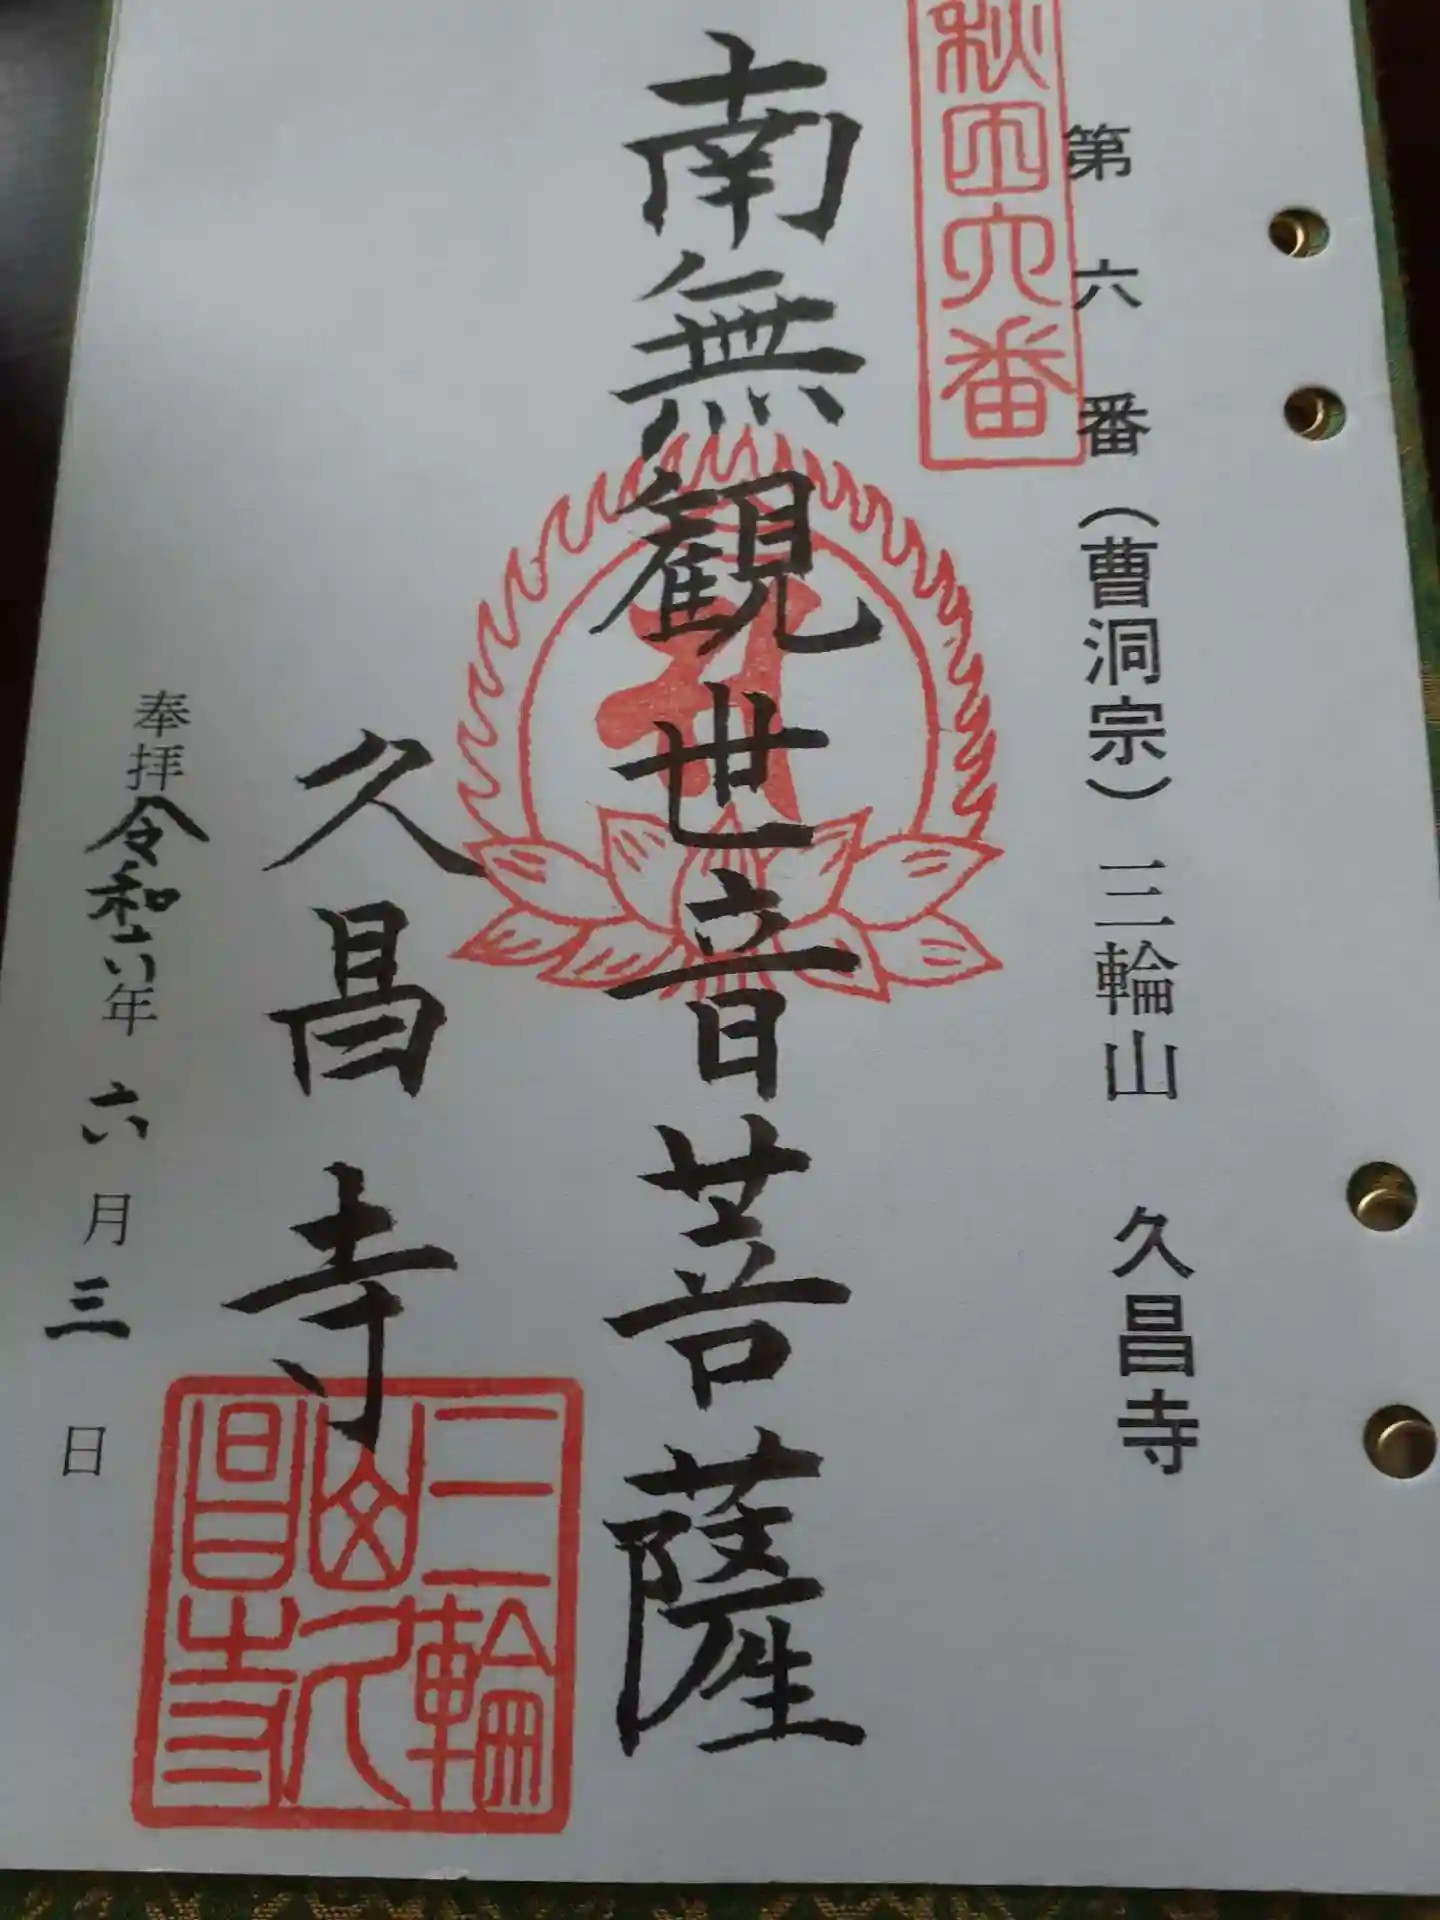 第六番(曹洞宗)三輪山 久昌寺
秋田六番
南無観世音菩薩
久昌寺
三輪山久昌寺
奉拝 令和六年 六月三日